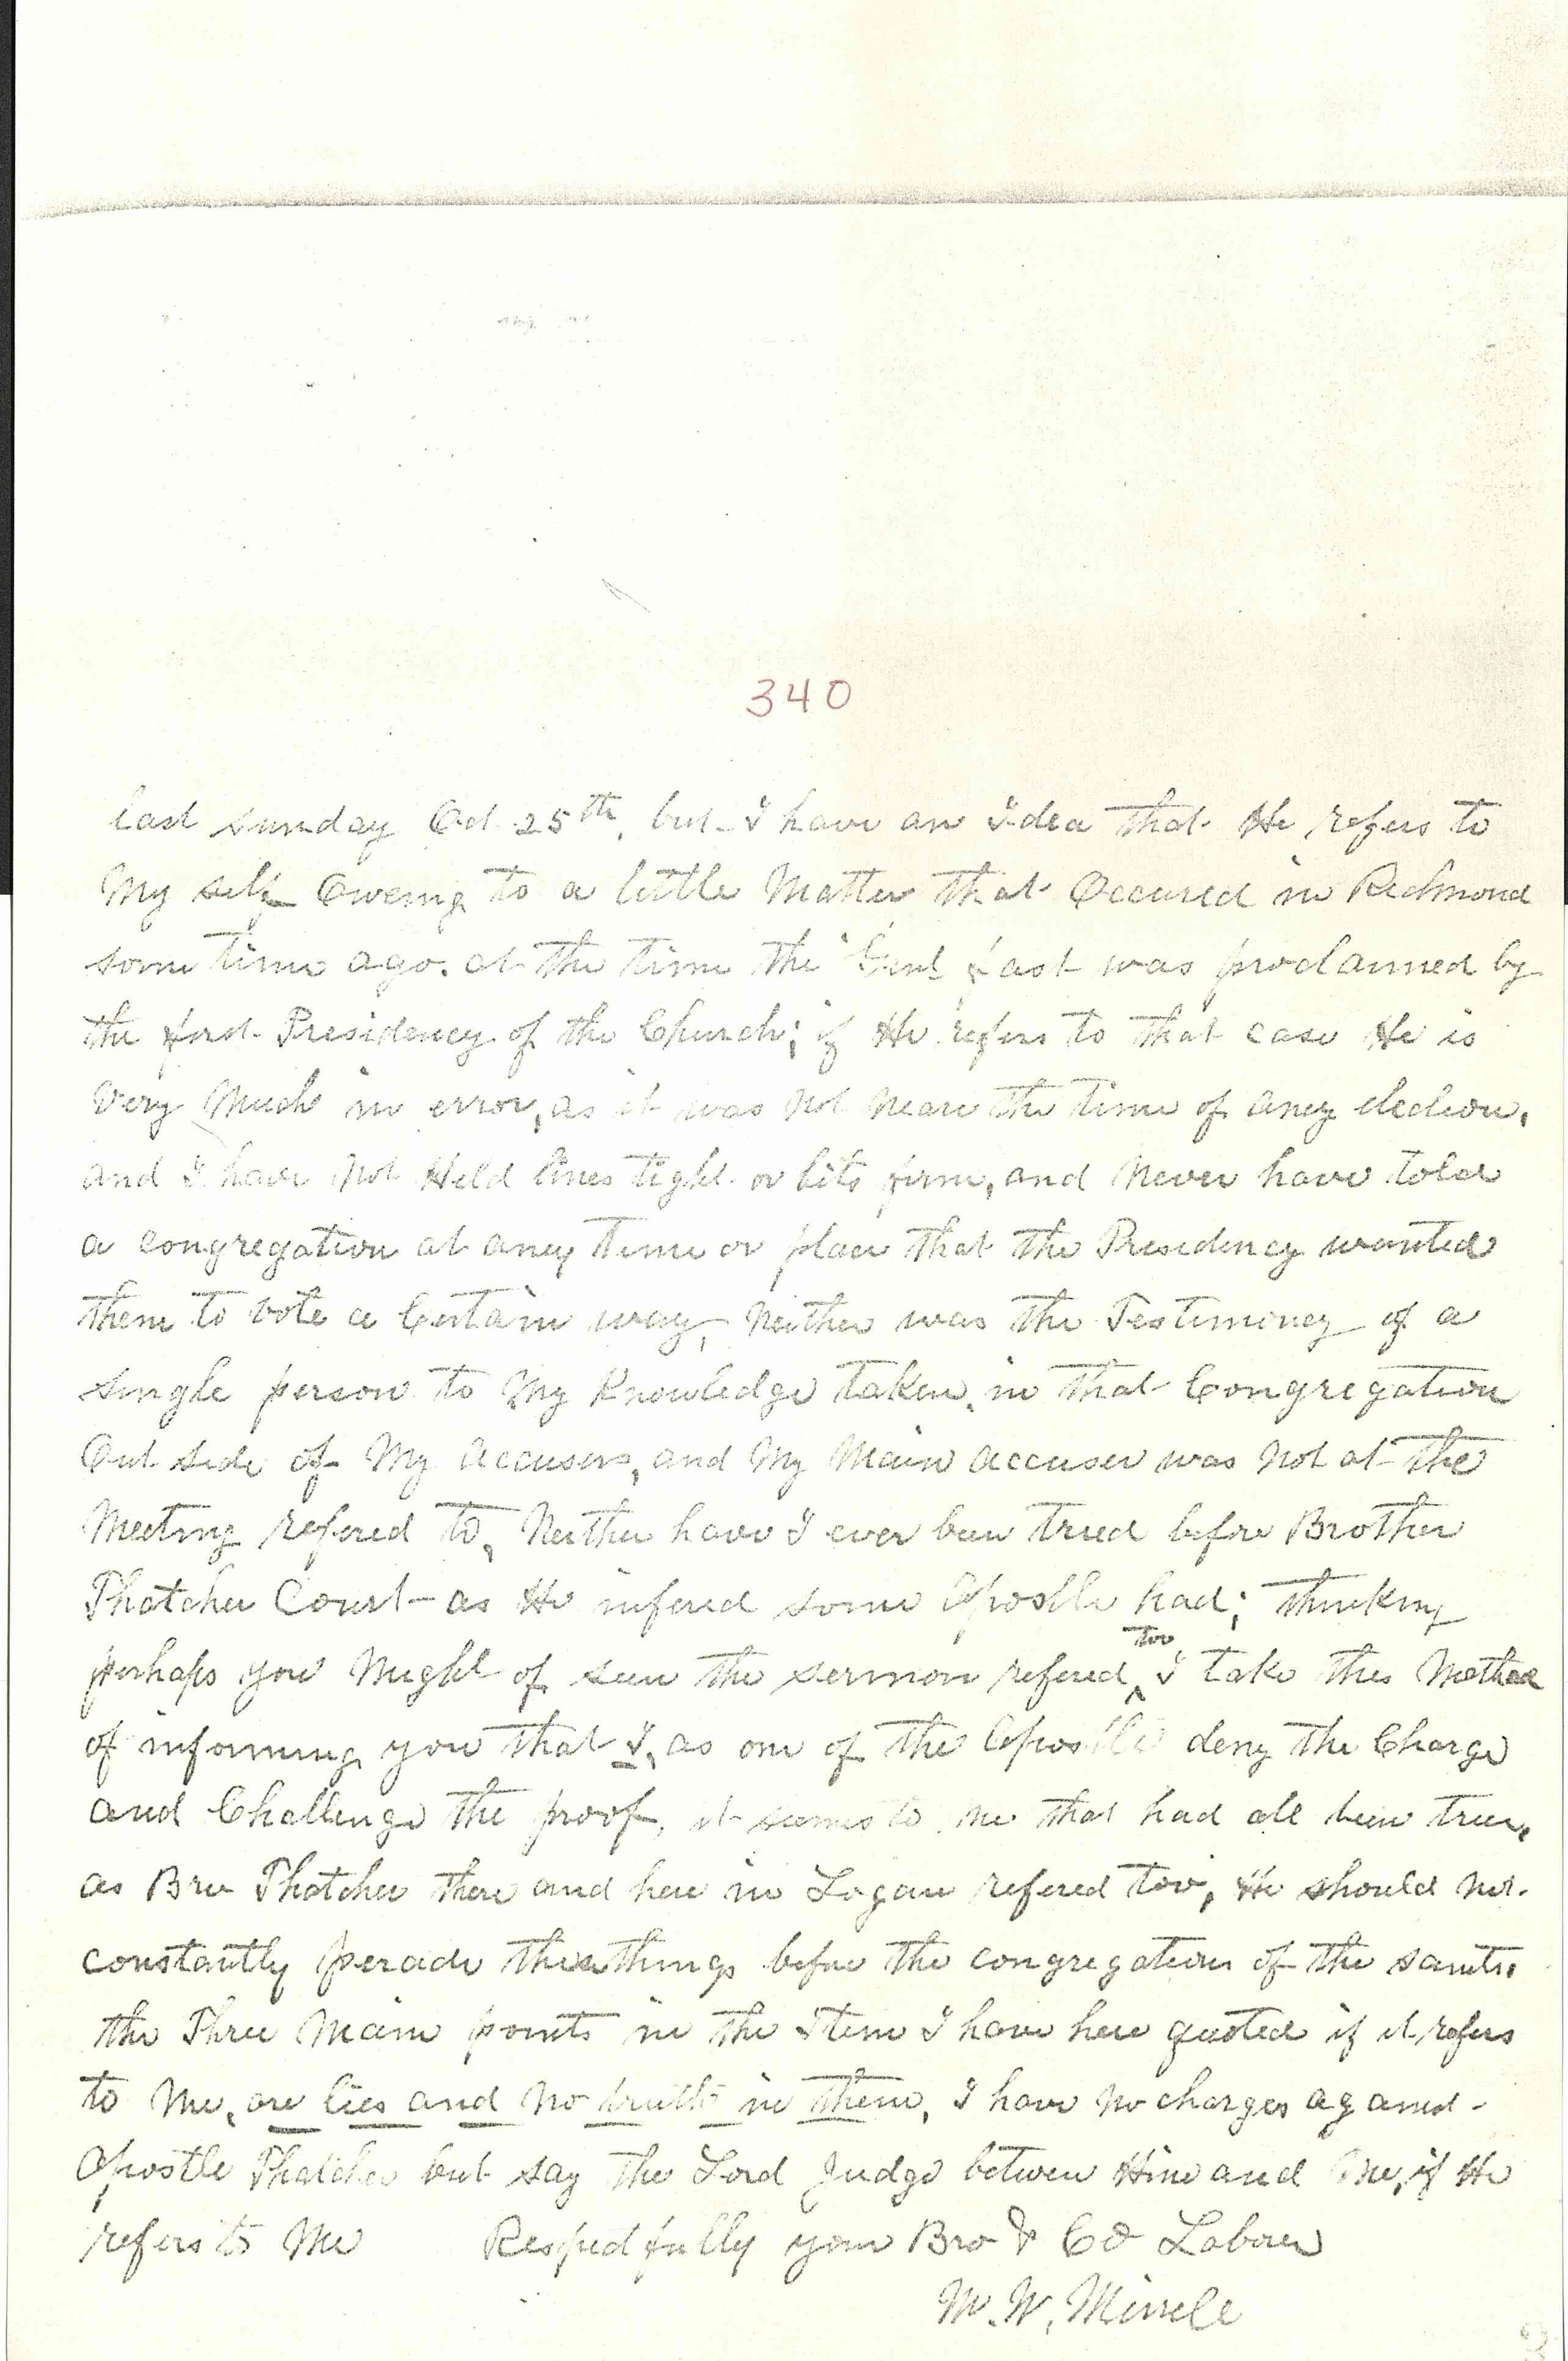 340
last sunday Oct 25th, but I have an Idea that He refers to
My self Oweing to a little Matter that Occured in Richmond
some time ago. at the time the Genl fast was proclaimed by
the first Presidency of the Church; if He refers to that case He is
very Much in error, as it was Not Neare the time of aney election,
and I have Not Held lines tight or bits firm, and Never have told
a congregation at aney time or place that the Presidency wanted
them to vote a Certain way, Neither was the Testimoney of a
single person to My Knowledge taken in that Congregation
Out side of My accusers, and My Main accuser was Not at the
Meeting refered to, Neither have I ever been tried before Brother
Thatcher Court as He infered some Apostle had; thinking
perhaps you Might of seen the sermon refered too I take this Method
of informing you that I, as one of the Apostles deny the Charge
and Challenge the proof, it seems to me that had all been true,
as Bro Thatcher there and here in Logan refered too, He should not
constantly perade these things before the congregation of the saints.
the Three Main points in the Item I have here quoted if it refers
to Me, are lies and No truth in them, I have No charges against
Apostle Thatcher but say the Lord Judge between Him and Me, if He
refers to Me Respectfully your Bro & Co Laborer
M. W. Merrill